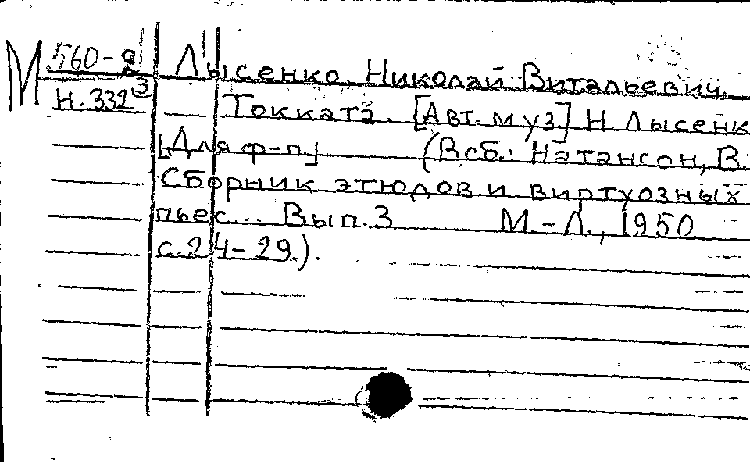 М 560-2 Лысенко, Николай Витальевич.
Н.332³ Токката. [Авт. муз] Н Лысенк
[Для ф-п] (В сб.: Натансон, В.
Сборник этюдов и виртуозных
пьес... Вып. 3 М-Л., 1950
с. 24-29).